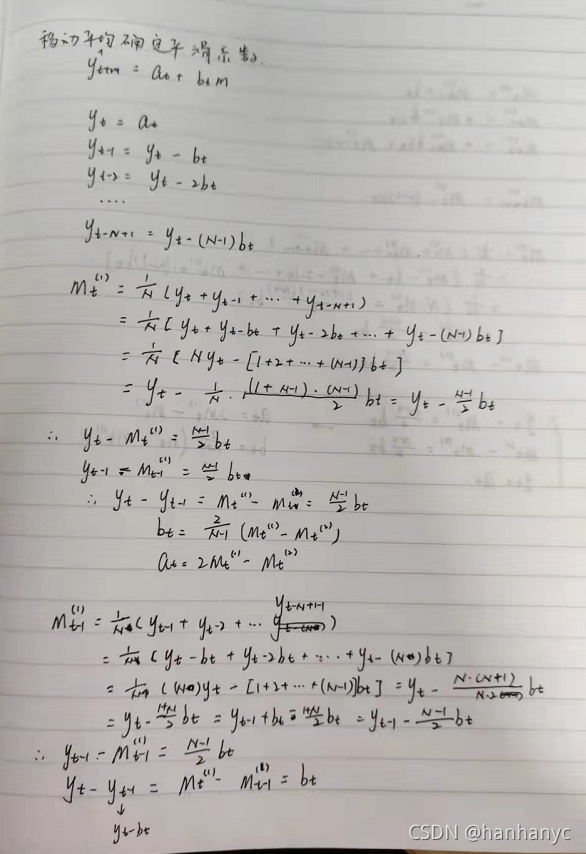 移动平均确定平滑系数.
ŷt+m = at + bt m
yt = at
yt-1 = yt - bt
yt-2 = yt - 2bt
....
yt-N+1 = yt - (N-1)bt
Mt^(1) = 1/N (yt + yt-1 + ... + yt-N+1)
= 1/N [yt + yt-bt + yt-2bt + ... + yt-(N-1)bt]
= 1/N { Nyt - [1+2+...+(N-1)]bt }
= yt - 1/N · (1+N-1)·(N-1)/2 bt = yt - (N-1)/2 bt
∴ yt - Mt^(1) = (N-1)/2 bt
yt-1 - Mt-1^(1) = (N-1)/2 bt
∴ yt - yt-1 = Mt^(1) - Mt^(2) = (N-1)/2 bt
bt = 2/(N-1) (Mt^(1) - Mt^(2))
at = 2Mt^(1) - Mt^(2)
Mt-1^(1) = 1/N (yt-1 + yt-2 + ... yt-N+1-1)
= 1/N (yt-bt + yt-2bt + ... + yt-(N)bt]
= 1/N (N)yt - [1+2+...+(N-1)]bt] = yt - N·(N+1)/N·2 bt
= yt - (1+N)/2 bt = yt-1 + bt - (1+N)/2 bt = yt-1 - (N-1)/2 bt
∴ yt-1 - Mt-1^(1) = (N-1)/2 bt
yt - yt-1 = Mt^(1) - Mt-1^(1) = bt
↓
yt-bt
CSDN @hanhanyc